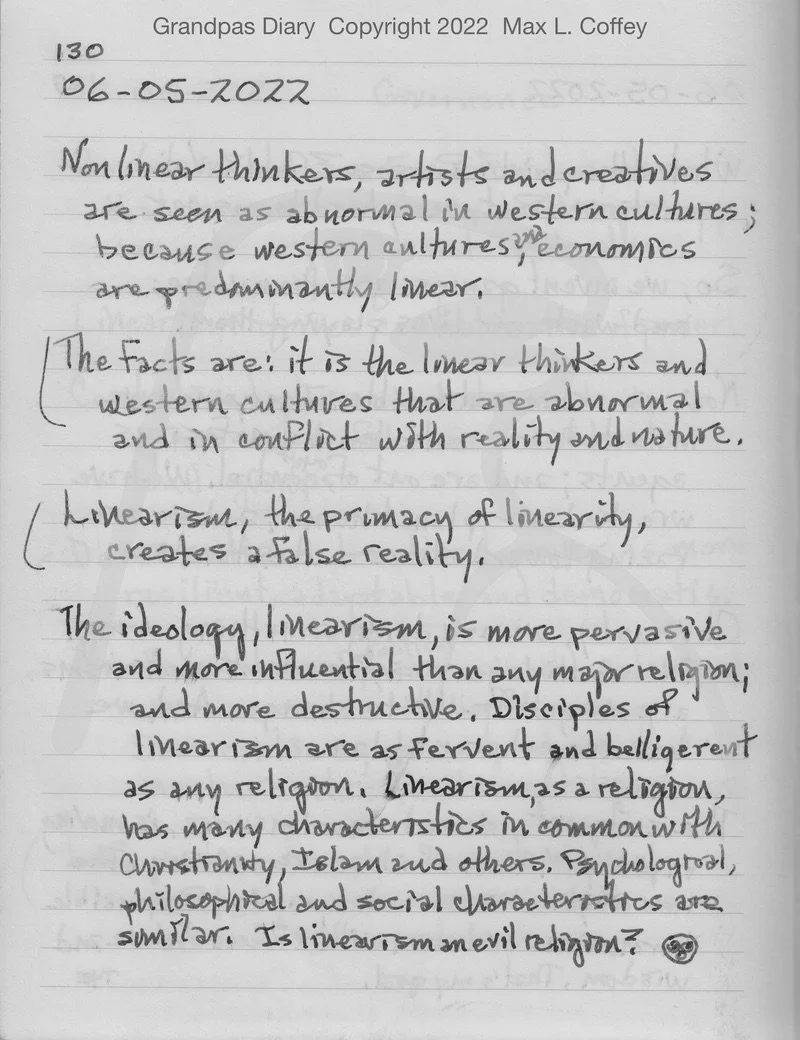 Grandpas Diary Copyright 2022 Max L. Coffey
130
06-05-2022
Nonlinear thinkers, artists and creatives
are seen as abnormal in western cultures;
because western cultures, and economics
are predominantly linear.
The facts are: it is the linear thinkers and
western cultures that are abnormal
and in conflict with reality and nature.
Linearism, the primacy of linearity,
creates a false reality.
The ideology, linearism, is more pervasive
and more influential than any major religion;
and more destructive. Disciples of
linearism are as fervent and belligerent
as any religion. Linearism, as a religion,
has many characteristics in common with
Christianity, Islam and others. Psychological,
philosophical and social characteristics are
similar. Is linearism an evil religion?